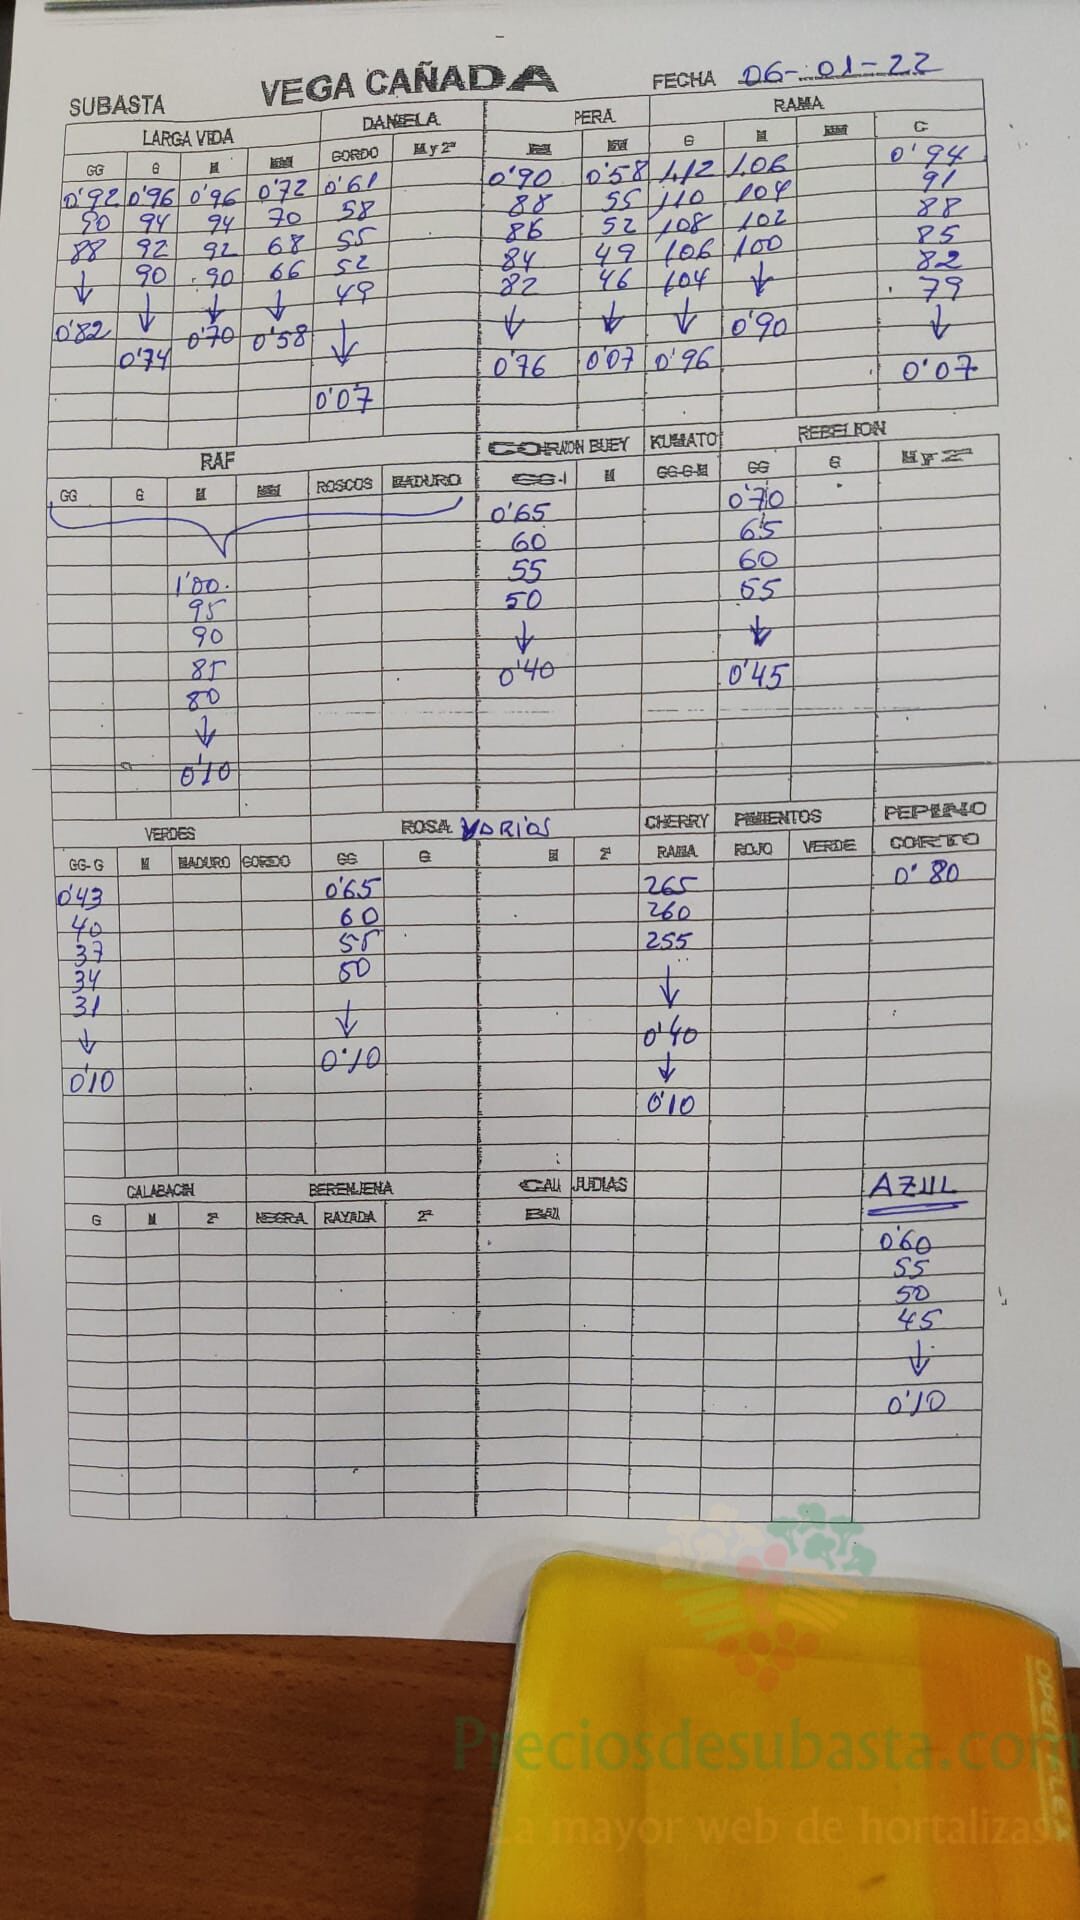 SUBASTA VEGA CAÑADA FECHA 06-01-22
LARGA VIDA DANIELA PERA RAMA
GG G M MM GORDO M y 2ª G M MM C
0'92 0'96 0'96 0'72 0'61 0'90 0'58 1.12 1.06 0'94
90 94 94 70 58 88 55 110 104 91
88 92 92 68 55 86 52 108 102 88
↓ 90 90 66 52 84 49 106 100 85
0'82 ↓ ↓ ↓ 49 82 46 104 ↓ 82
0'74 0'70 0'58 ↓ ↓ ↓ ↓ 0'90 79
0'07 0'76 0'07 0'96 ↓
0'07
RAF CORAZON BUEY KUMATO REBELION
GG G M MM ROSCOS MADURO GG-1 M GG-G-M GG G M y 2ª
0'65 0'70
60 65
1'00 55 60
95 50 55
90 ↓ ↓
85 0'40 0'45
80
↓
0'10
VERDES ROSA VARIOS CHERRY PIMIENTOS PEPINO
GG-G M MADURO GORDO GG G M 2ª RAMA ROJO VERDE CORTO
0'43 0'65 265 0'80
40 60 260
37 55 255
34 50 ↓
31 ↓ 0'40
↓ 0'10 ↓
0'10 0'10
CALABACIN BERENJENA CALI JUDIAS AZUL
G M 2ª NEGRA RAYADA 2ª
0'60
55
50
45
↓
0'10
Preciosdesubasta.com
La mayor web de hortalizas
OPEN FLEX